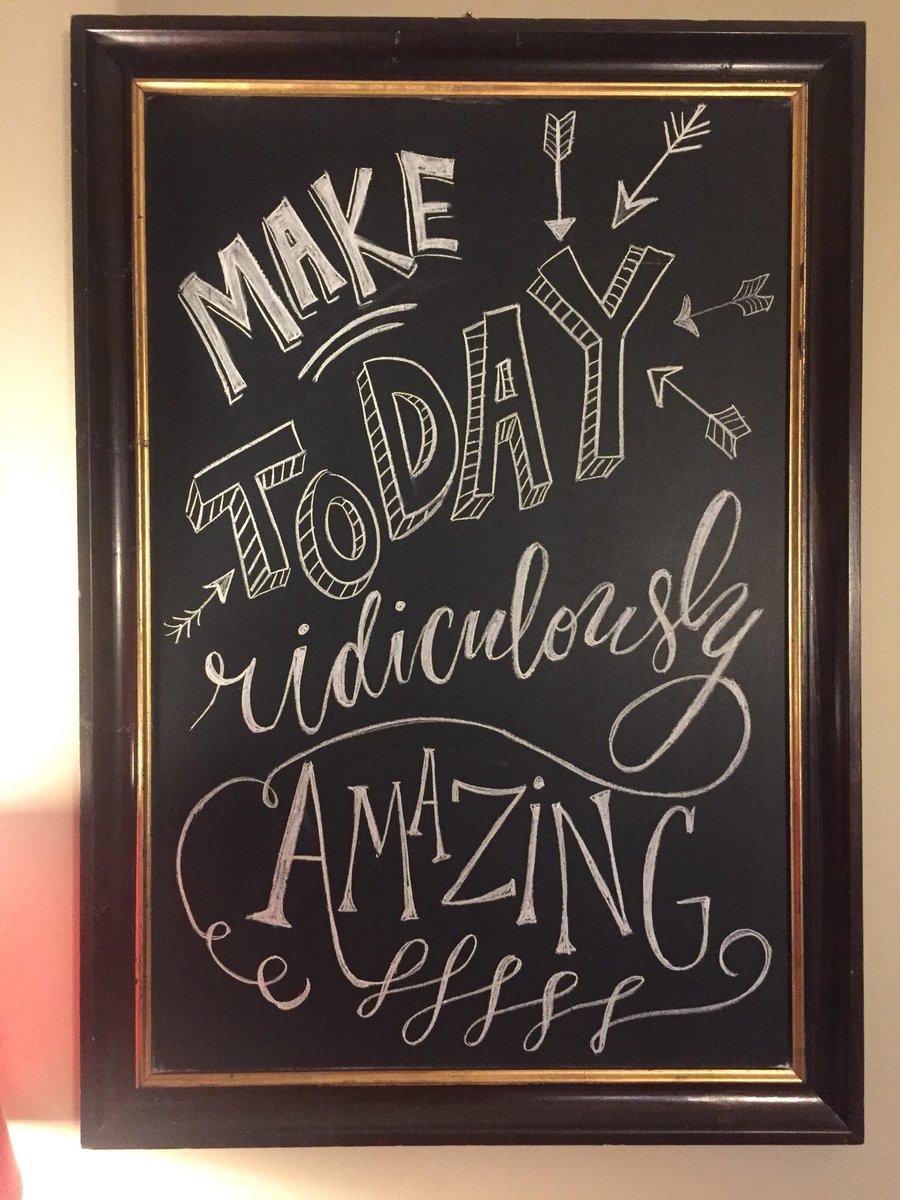 MAKE
TODAY
ridiculously
AMAZiNG